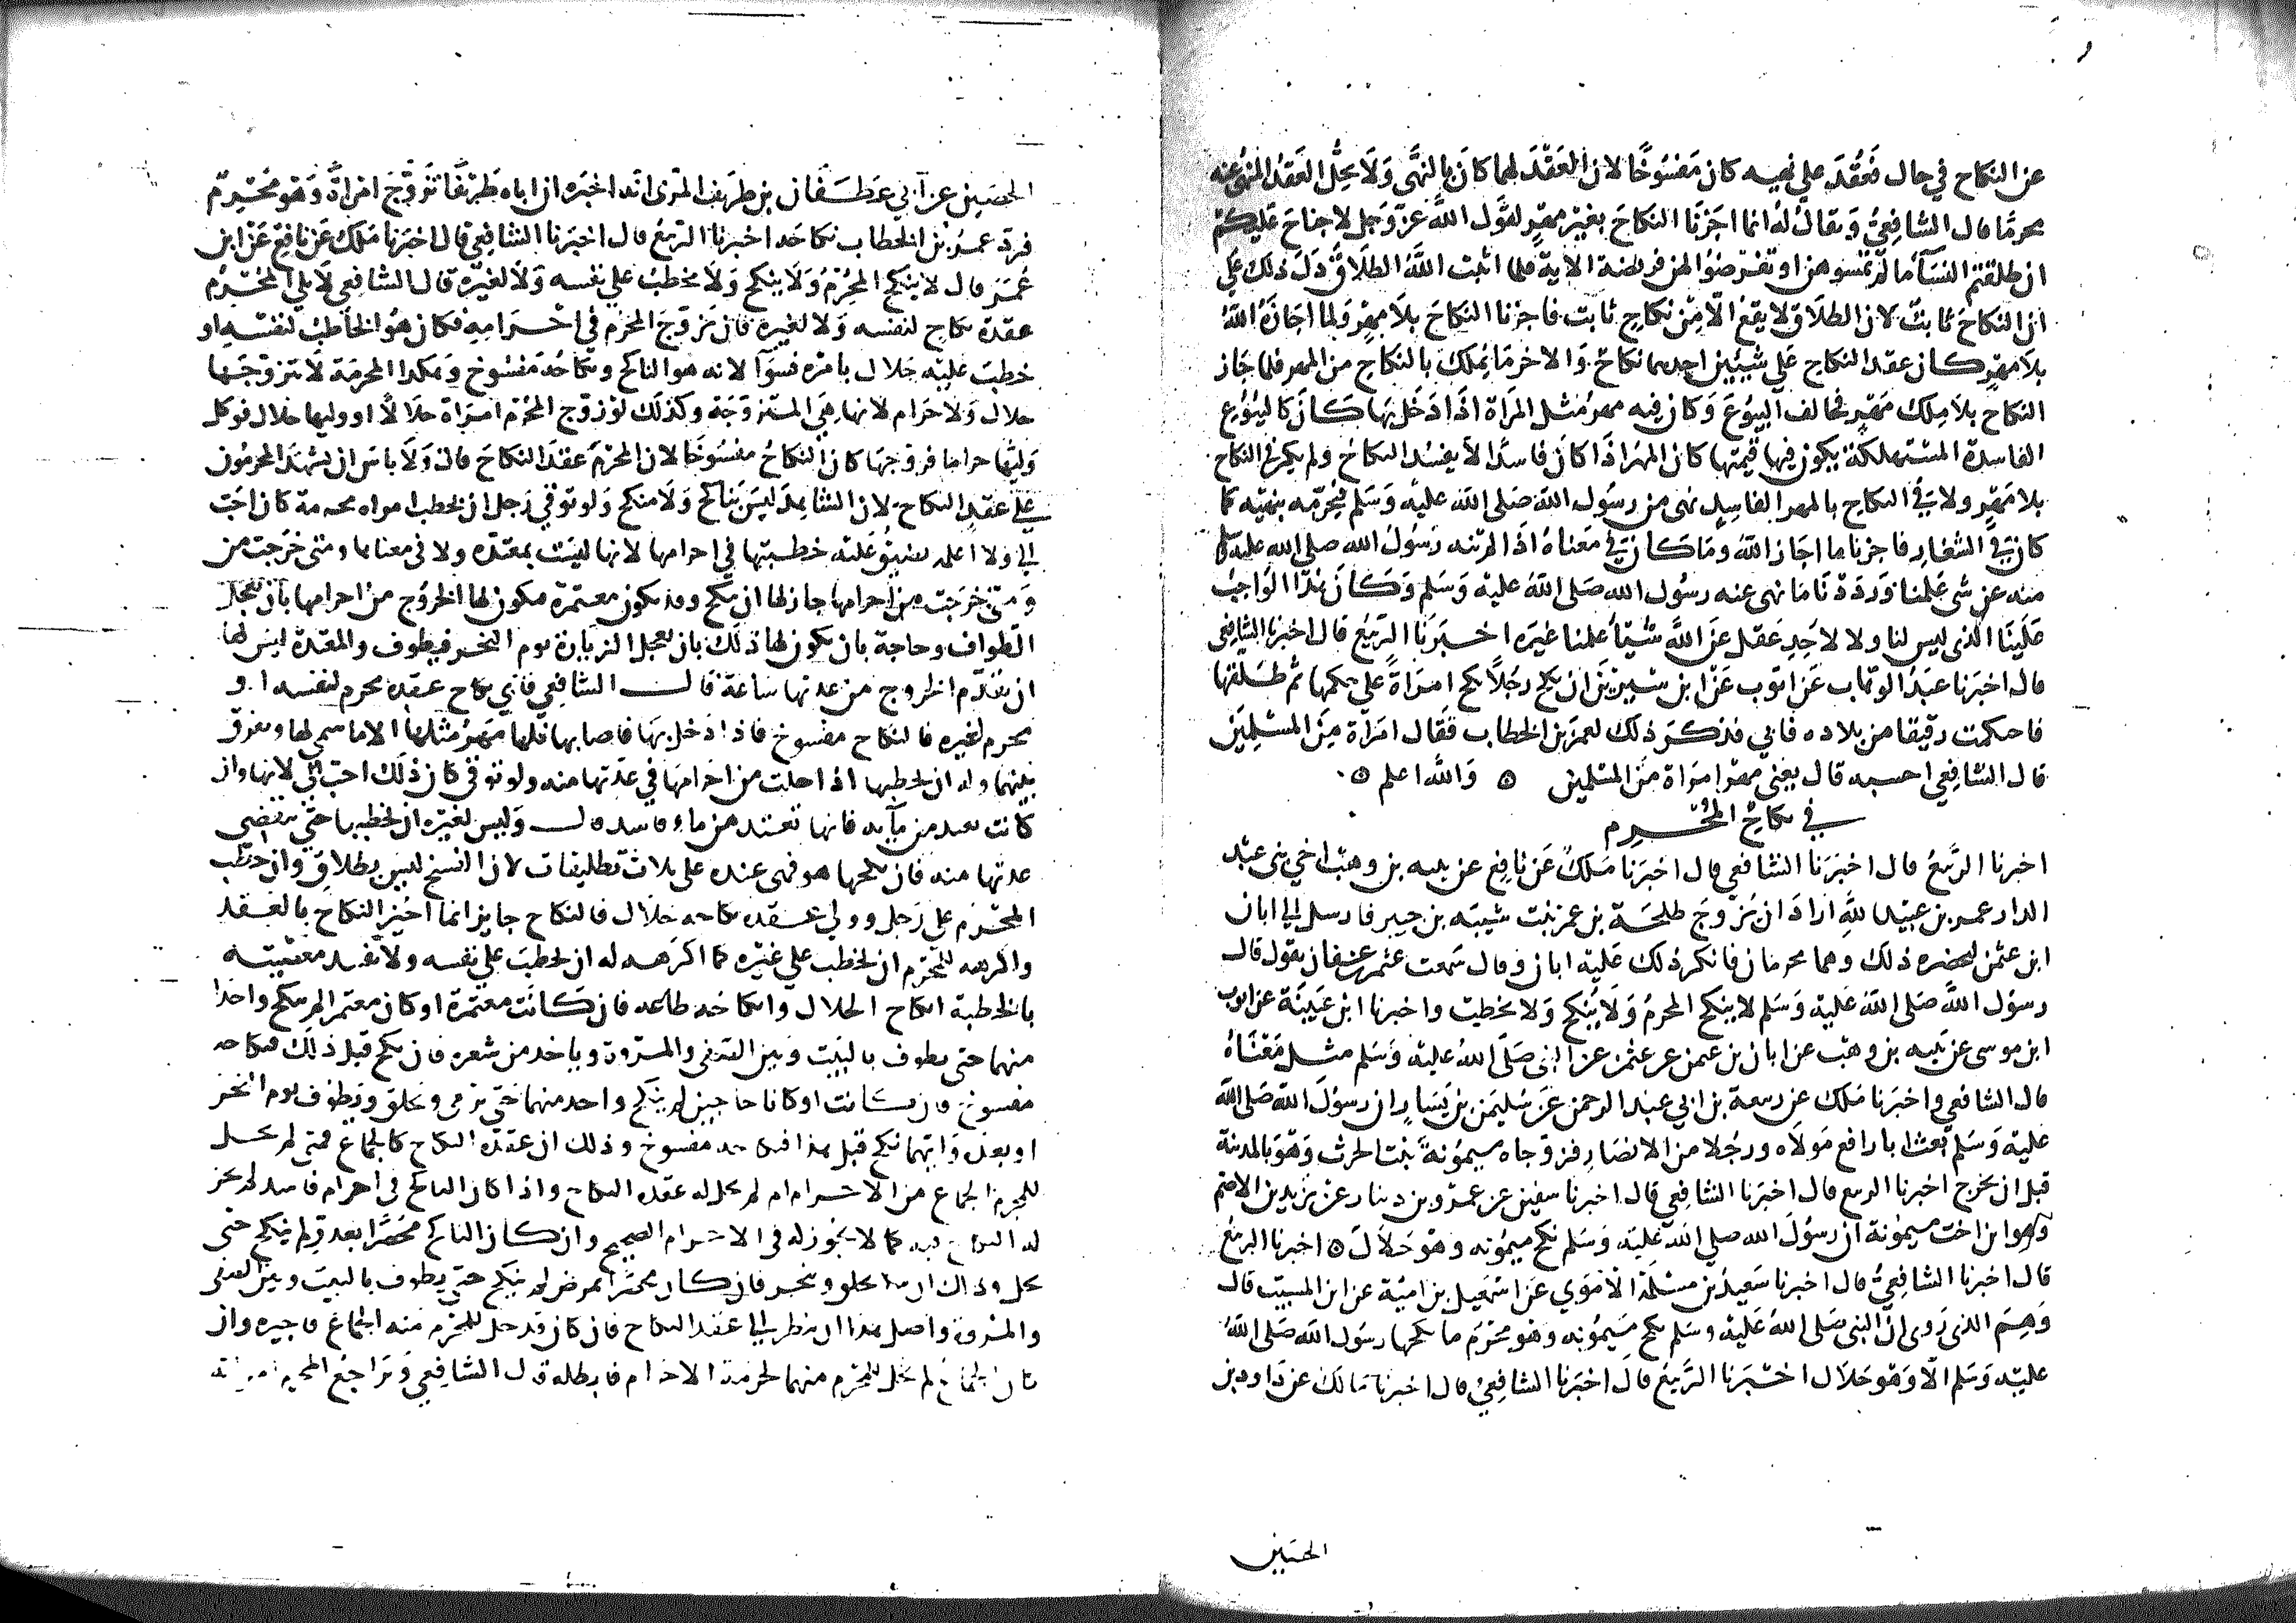 عن النكاح في حال فعقد على نهيه كان مفسوخا لان العقد لهما كان بالنهى ولا يحل العقد المنهى عنه
محرما قال الشافعي ويقال له انما اجزنا النكاح بغير مهر لقول الله عز وجل لا جناح عليكم
ان طلقتم النسآ ما لم تمسوهن او تفرضوا لهن فريضة الاية فلما اثبت الله الطلاق دل ذلك على
ان النكاح ثابت لان الطلاق لا يقع الا من نكاح ثابت فاجزنا النكاح بلا مهر ولما اجازه الله
بلا مهر كان عقد النكاح على شيئين احدهما نكاح والاخر ما يملك بالنكاح من المهر فلما جاز
النكاح بلا ملك مهر فخالف البيوع وكان فيه مهر مثل المراة اذا دخل بها كان كالبيوع
الفاسدة المستهلكة يكون فيها قيمتها كان المهر اذا كان فاسدا لا يفسد النكاح ولم يكن في النكاح
بلا مهر ولا في النكاح بالمهر الفاسد نهى من رسول الله صلى الله عليه وسلم فيحرمه بنهيه كما
كان في الشغار فاجزنا ما اجاز الله وما كان في معناه اذا لم ينه رسول الله صلى الله عليه وسلم
منه عن شى علمنا ورددنا ما نهى عنه رسول الله صلى الله عليه وسلم وكان هذا الواجب
علينا الذى ليس لنا ولا لاحد عقل عن الله شيئا علمنا غيره اخبرنا الربيع قال اخبرنا الشافعي
قال اخبرنا عبد الوهاب عن ايوب عن ابن سيرين ان رجلا نكح امراة على حكمها ثم طلقها
فاحكمت رقيقا من بلاده فابي فذكر ذلك لعمر بن الخطاب فقال امراة من المسلمين
قال الشافعي احسبه قال يعني مهر امراة من المسلمين ه والله اعلم ه
في نكاح المحرم
اخبرنا الربيع قال اخبرنا الشافعي قال اخبرنا ملك عن نافع عن نبيه بن وهب اخي بنى عبد
الدار عمر بن عبيد الله اراد ان يزوج طلحة بن عمر بنت شيبه بن جبير فارسل الى ابان
ابن عثمن ليحضره ذلك وهما محرمان فانكر ذلك عليه ابان وقال سمعت عثمن بن عفان يقول قال
رسول الله صلى الله عليه وسلم لا ينكح المحرم ولا ينكح ولا يخطب واخبرنا ابن عيينة عن ايوب
ابن موسى عن نبيه بن وهب عن ابان بن عثمن عن عثمن عن النبي صلى الله عليه وسلم مثل معناه
قال الشافعي واخبرنا ملك عن ربيعة بن ابي عبد الرحمن عن سليمن بن يسار ان رسول الله صلى الله
عليه وسلم بعث ابا رافع مولاه ورجلا من الانصار فزوجاه ميمونة بنت الحرث وهو بالمدينة
قبل ان يخرج اخبرنا الربيع قال اخبرنا الشافعي قال اخبرنا سفين عن عمرو بن دينار عن يزيد بن الاصم
وهو ابن اخت ميمونة ان رسول الله صلى الله عليه وسلم نكح ميمونه وهو حلال ه اخبرنا الربيع
قال اخبرنا الشافعي قال اخبرنا سعيد بن مسلمة الاموي عن اسمعيل بن امية عن ابن المسيب قال
وهم الذى روى ان النبي صلى الله عليه وسلم نكح ميمونه وهو محرم ما نكحها رسول الله صلى الله
عليه وسلم الا وهو حلال اخبرنا الربيع قال اخبرنا الشافعي قال اخبرنا مالك عن داود بن
الحصين
الحصين عن ابي غطفان بن طريف المرى انه اخبره ان اباه طريفا تزوج امراة وهو محرم
فرد عمر بن الخطاب نكاحه اخبرنا الربيع قال اخبرنا الشافعي قال اخبرنا ملك عن نافع عن ابن
عمر قال لا ينكح المحرم ولا ينكح ولا يخطب على نفسه ولا لغيره قال الشافعي لا يلي المحرم
عقدة نكاح لنفسه ولا لغيره فان تزوج المحرم في احرامه فكان هو الخاطب لنفسه او
خطب عليه حلال بامره فسوآ لانه هو الناكح ونكاحه مفسوخ وهكذا المحرمة لا يتزوجها
حلال ولا حرام لانها هي المتزوجة وكذلك لو زوج المحرم امراة حلالا او وليها حلال فوكل
وليها حراما فزوجها كان النكاح مفسوخا لان المحرم عقد النكاح قال ولا باس ان يشهد المحرمون
على عقد النكاح لان الشاهد ليس بناكح ولا منكح ولو توقي رجل ان يخطب امراه محرمة كان احب
الي ولا اعلمه يضيق عليه خطبتها في احرامها لانها ليست بمعتده ولا في معناها ومتى خرجت من
ومتى خرجت من احرامها جاز لها ان تنكح وقد تكون معتمرة فيكون لها الخروج من احرامها بان تعجل
الطواف وحاجة بان يكون لها ذلك بان تعجل الزيارة يوم النحر فتطوف والمعتدة ليس لها
ان تقدم الخروج من عدتها ساعة قال الشافعي فاي نكاح عقده محرم لنفسه او
محرم لغيره فالنكاح مفسوخ فاذا دخل بها فاصابها فلها مهر مثلها الا ما سمى لها ويفرق
بينهما وله ان يخطبها اذا احلت من احرامها في عدتها منه ولو توقى كان ذلك احب الي لانها وان
كانت تعتد من مآئه فانها تعتد من ماء فاسد قال وليس لغيره ان يخطبها حتى تنقضى
عدتها منه فان نكحها هو فهى عنده على ثلاث تطليقات لان الفسخ ليس بطلاق وان خطب
المحرم على رجل وولي عقدة نكاحه حلال فالنكاح جايز انما اجيز النكاح بالعقد
واكره للمحرم ان يخطب على غيره كما اكره له ان يخطب على نفسه ولا تفسد معصيته
بالخطبة انكاح الحلال وانكاحه طاعه فان كانت معتمرة او كان معتمرا لم ينكح واحدا
منهما حتى يطوف بالبيت وبين الصفى والمروة وياخذ من شعره فان نكح قبل ذلك فنكاحه
مفسوخ فان كانت او كانا حاجين لم ينكح واحد منهما حتى يرمي ويحلق ويطوف يوم النحر
او بعده وايهما نكح قبل هذا فنكاحه مفسوخ وذلك ان عقدة النكاح كالجماع فمتى لم يحل
للمحرم الجماع من الاحرام لم يحل له عقده النكاح واذا كان الناكح في احرام فاسد لم يجز
له النكاح فيه كما لا يجوز له في الاحرام الصحيح وان كان الناكح محصرا بعدو لم ينكح حتى
يحل وذلك ان يحلق وينحر فان كان محصرا بمرض لم ينكح حتى يطوف بالبيت وبين الصفى
والمروة واصل هذا ان ينظر الى عقد النكاح فان كان قد حل للمحرم منه الجماع فاجيزه وان
كان الجماع لم يحل للمحرم منهما لحرمة الاحرام فابطله قال الشافعي ويراجع المحرم امراته